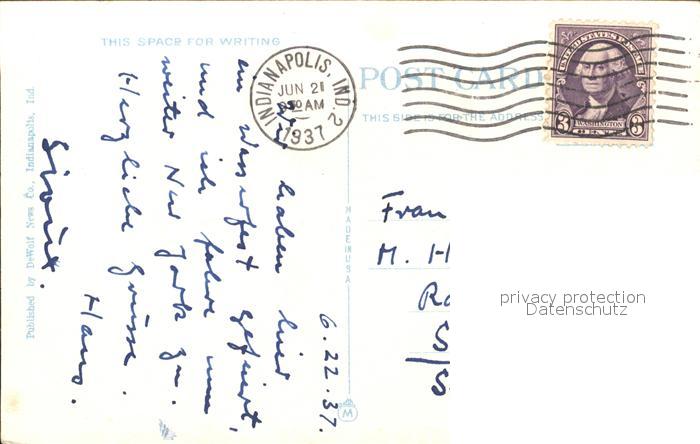 THIS SPACE FOR WRITING
6.22.37.
Wir haben hier
ein Wasserfest gefeiert,
und ich fahre nun
weiter New York zu.
Herzliche Grüsse.
Hans.
Published by DeWolf News Co., Indianapolis, Ind.
MADE IN USA
M
INDIANAPOLIS, IND. 2
JUN 21
AM
1937
POST CARD
THIS SIDE IS FOR THE ADDRESS
UNITED STATES POSTAGE
3
WASHINGTON
3
Frau
M. H
privacy protection
Datenschutz